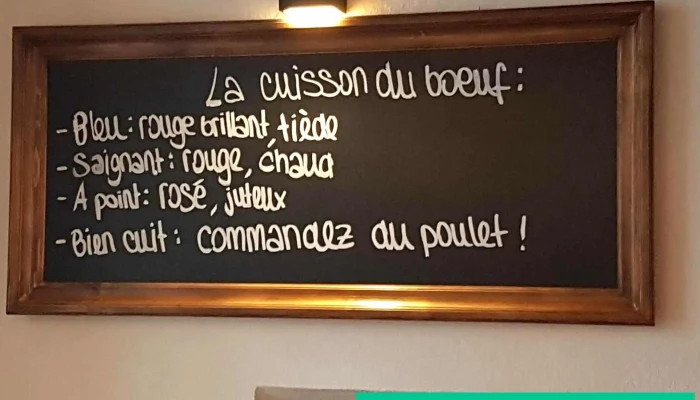 La cuisson du boeuf :
- Bleu : rouge brillant, tiède
- Saignant : rouge, chaud
- A point : rosé, juteux
- Bien cuit : commandez du poulet !